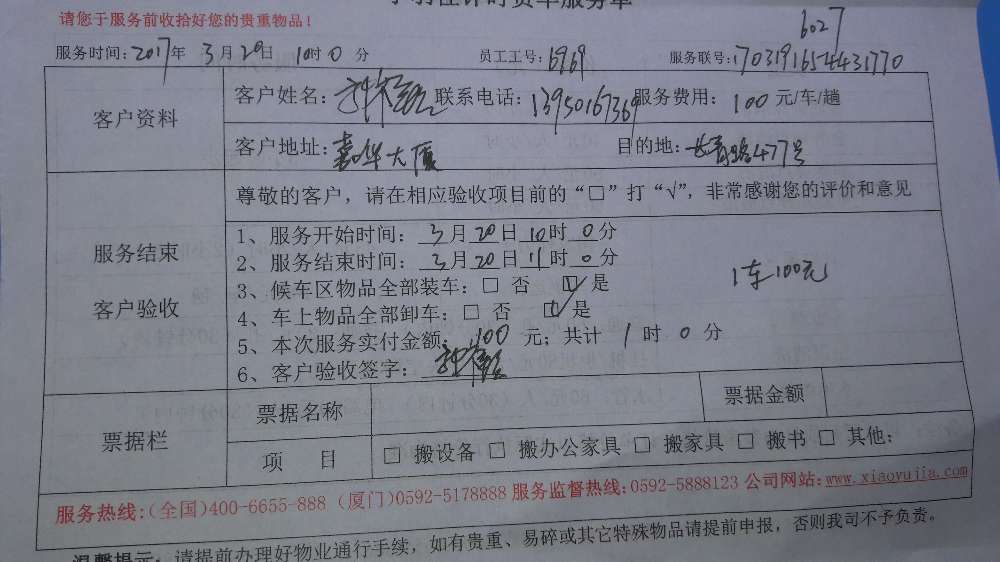 时货车服务单
请您于服务前收拾好您的贵重物品！
6027
服务时间：2017年 3月20日 10时0分 员工工号：6969 服务联号：1703191654431770
客户资料
客户姓名： 联系电话：13950167369 服务费用：100元/车/趟
客户地址：嘉华大厦 目的地：长青路477号
尊敬的客户，请在相应验收项目前的“□”打“√”，非常感谢您的评价和意见
服务结束
客户验收
1、服务开始时间：3月20日10时0分
2、服务结束时间：3月20日11时0分
3、候车区物品全部装车：□ 否 □ 是
4、车上物品全部卸车：□ 否 ☑ 是
1车100元
5、本次服务实付金额：100元；共计 1 时 0 分
6、客户验收签字：
票据栏
票据名称 票据金额
项 目 □ 搬设备 □ 搬办公家具 □ 搬家具 □ 搬书 □ 其他：
服务热线：(全国)400-6655-888 (厦门)0592-5178888 服务监督热线：0592-5888123 公司网站：www.xiaoyujia.com
温馨提示：请提前办理好物业通行手续，如有贵重、易碎或其它特殊物品请提前申报，否则我司不予负责。